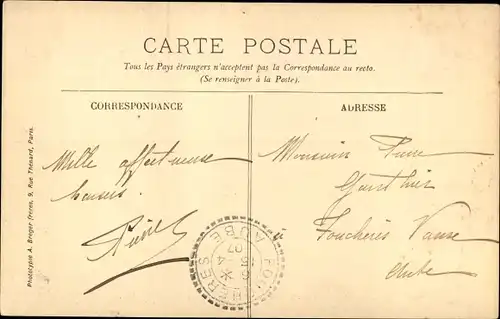 CARTE POSTALE
Tous les Pays étrangers n'acceptent pas la Correspondance au recto.
(Se renseigner à la Poste).
CORRESPONDANCE
Mille affectueuse
baisers.
Pierre
ADRESSE
Monsieur Pierre
Gauthier
à Fouchères Vaux
Aube
FOUCHERES
AUBE
15 - 4
07
Phototypie A. Breger frères, 9, Rue Thénard, Paris.